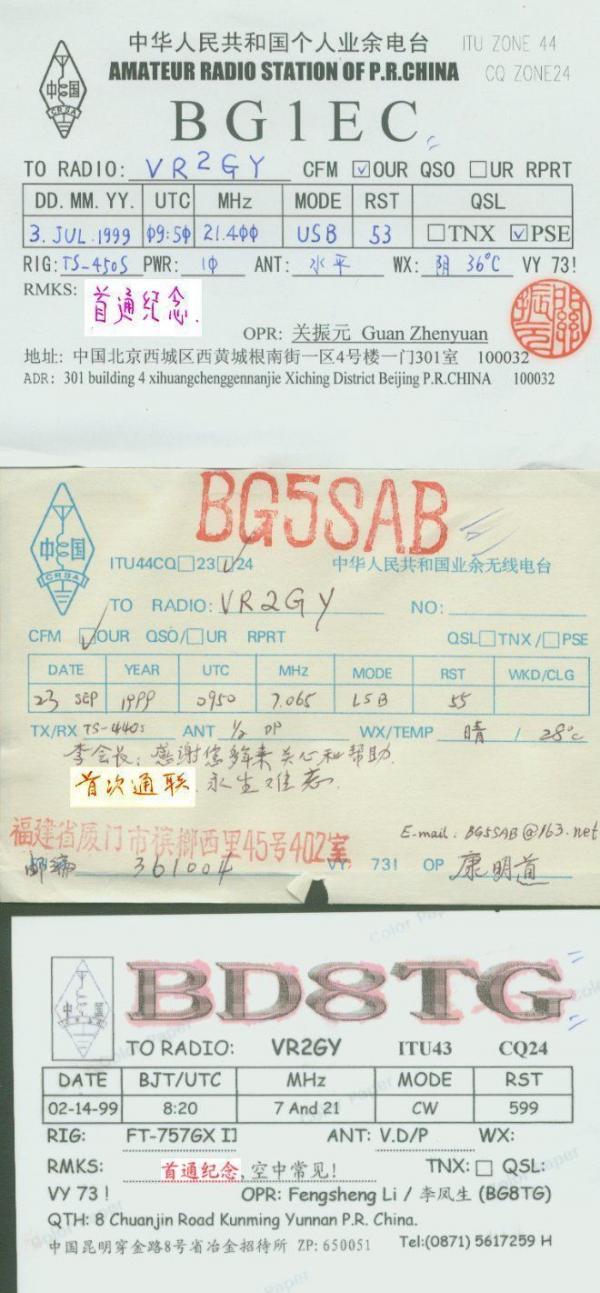 中华人民共和国个人业余电台 ITU ZONE 44
AMATEUR RADIO STATION OF P.R.CHINA CQ ZONE24
中国
CRSA
BG1EC
TO RADIO: VR2GY CFM ☑OUR QSO □UR RPRT
DD. MM. YY. UTC MHz MODE RST QSL
3. JUL. 1999 09:50 21.400 USB 53 □TNX ☑PSE
RIG: TS-450S PWR: 10 ANT: 水平 WX: 阴 36°C VY 73!
RMKS: 首通纪念.
OPR: 关振元 Guan Zhenyuan
地址: 中国北京西城区西黄城根南街一区4号楼一门301室 100032
ADR: 301 building 4 xihuangchenggennanjie Xiching District Beijing P.R.CHINA 100032
BG5SAB
中国
CRSA
ITU44CQ□23☑24 中华人民共和国业余无线电台
TO RADIO: VR2GY NO:
CFM ☑OUR QSO/□UR RPRT QSL□TNX/□PSE
DATE YEAR UTC MHz MODE RST WKD/CLG
23 SEP 1999 0950 7.065 LSB 55
TX/RX TS-440S ANT 1/2 DP WX/TEMP 晴 / 28°C
李会长: 感谢您多年来关心和帮助.
首次通联 永生难忘.
福建省厦门市槟榔西里45号402室
E-mail: BG5SAB@163.net
邮编 361004 VY, 73! OP 康明道
BD8TG
TO RADIO: VR2GY ITU43 CQ24
DATE BJT/UTC MHz MODE RST
02-14-99 8:20 7 And 21 CW 599
RIG: FT-757GX II ANT: V.D/P WX:
RMKS: 首通纪念,空中常见! TNX: □ QSL:
VY 73 ! OPR: Fengsheng Li / 李凤生 (BG8TG)
QTH: 8 Chuanjin Road Kunming Yunnan P.R. China.
中国昆明穿金路8号省冶金招待所 ZP: 650051 Tel:(0871) 5617259 H
Color Paper